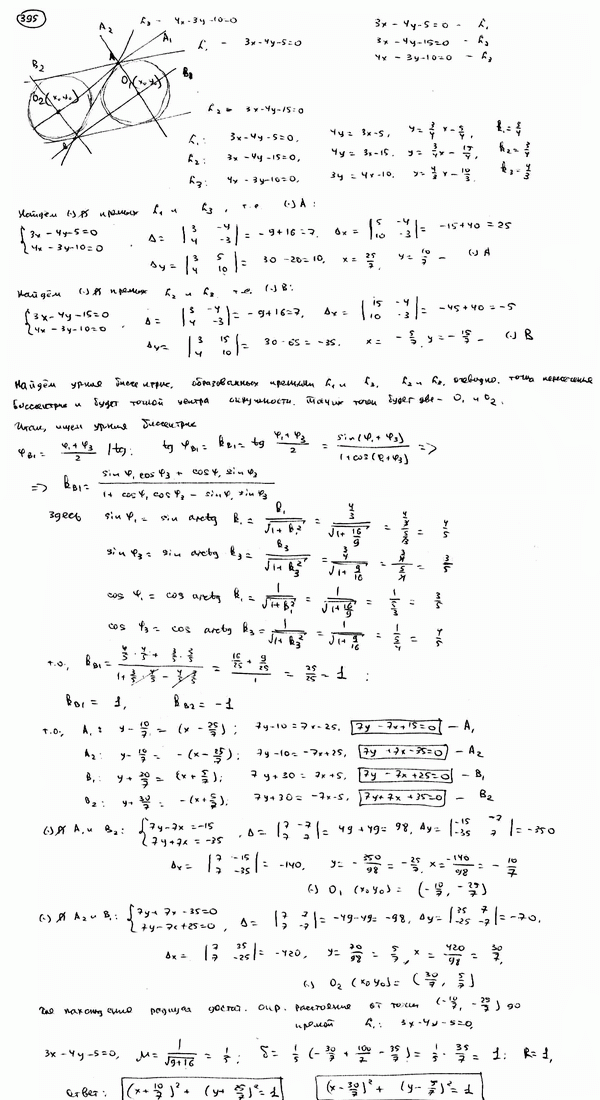 395
L₃ - 4x-3y-10=0
A₂
A₁
L₁ - 3x-4y-5=0
B₂
A
O₁(x₀y₀)
B₁
O₂(x₀y₀)
B
L₂ = 3x-4y-15=0
3x-4y-5=0 - L₁
3x-4y-15=0 - L₂
4x-3y-10=0 - L₃
L₁: 3x-4y-5=0, 4y=3x-5, y=3/4 x - 5/4, k₁=3/4
L₂: 3x-4y-15=0, 4y=3x-15. y=3/4 x - 15/4, k₂=3/4
L₃: 4x-3y-10=0, 3y=4x-10. y=4/3 x - 10/3. k₃=4/3
Найдём (·) ∩ прямых L₁ и L₃, т.е (·) A:
{3x-4y-5=0 4x-3y-10=0, Δ=|3 -4; 4 -3|=-9+16=7, Δx=|5 -4; 10 -3|=-15+40=25
Δy=|3 5; 4 10|=30-20=10, x=25/7, y=10/7 - (·) A
Найдём (·) ∩ прямых L₂ и L₃ т.е. (·) B:
{3x-4y-15=0 4x-3y-10=0, Δ=|3 -4; 4 -3|=-9+16=7, Δx=|15 -4; 10 -3|=-45+40=-5
Δy=|3 15; 4 10|=30-65=-35. x=-5/7, y=-15/7 - (·) B
Найдём ур-ния биссектрис, образованных прямыми L₁ и L₃, L₂ и L₃, очевидно, точка пересечения
биссектрис и будет точкой центра окружности. Таких точек будет две - O₁ и O₂.
Итак, ищем ур-ния биссектрис
φ_B₁=(φ₁+φ₃)/2 | tg: tg φ_B₁ = k_B₁ = tg (φ₁+φ₃)/2 = sin(φ₁+φ₃)/(1+cos(φ₁+φ₃)) =>
=> k_B₁ = (sin φ₁ cos φ₃ + cos φ₁ sin φ₃)/(1 + cos φ₁ cos φ₃ - sin φ₁ sin φ₃)
Здесь sin φ₁ = sin arctg k₁ = k₁/√(1+k₁²) = (4/3)/√(1+16/9) = (4/3)/(5/3) = 4/5
sin φ₃ = sin arctg k₃ = k₃/√(1+k₃²) = (3/4)/√(1+9/16) = (3/4)/(5/4) = 3/5
cos φ₁ = cos arctg k₁ = 1/√(1+k₁²) = 1/√(1+16/9) = 1/(5/3) = 3/5
cos φ₃ = cos arctg k₃ = 1/√(1+k₃²) = 1/√(1+9/16) = 1/(5/4) = 4/5
т.о, k_B₁ = (4/5·4/5 + 3/5·3/5)/(1+3/5·4/5 - 4/5·3/5) = (16/25 + 9/25)/1 = 25/25 = 1;
k_B₁ = 1, k_B₂ = -1
т.о, A₁: y-10/7=(x-25/7); 7y-10=7x-25, 7y-7x+15=0 - A₁
A₂: y-10/7=-(x-25/7); 7y-10=-7x+25, 7y+7x-35=0 - A₂
B₁: y+30/7=(x+5/7); 7y+30=7x+5, 7y-7x+25=0 - B₁
B₂: y+30/7=-(x+5/7); 7y+30=-7x-5, 7y+7x+35=0 - B₂
(·) ∩ A₁ и B₂: {7y-7x=-15 7y+7x=-35, Δ=|7 -7; 7 7|=49+49=98, Δy=|-15 -7; -35 7|=-350
Δx=|7 -15; 7 -35|=-140, y=-350/98=-25/7, x=-140/98=-10/7
(·) O₁ (x₀y₀) = (-10/7, -25/7)
(·) ∩ A₂ и B₁: {7y+7x-35=0 7y-7x+25=0, Δ=|7 7; 7 -7|=-49-49=-98, Δy=|35 7; -25 -7|=-70,
Δx=|7 35; 7 -25|=-420, y=70/98=5/7, x=420/98=30/7,
(·) O₂ (x₀y₀) = (30/7, 5/7)
Для нахождения радиуса достат. опр. расстояние от точки (-10/7, -25/7) до
прямой L₁: 3x-4y-5=0,
3x-4y-5=0, M=1/√(9+16)=1/5; δ=1/5(-30/7+100/7-35/7)=1/5·35/7=1; R=1,
Ответ: (x+10/7)²+(y+25/7)²=1 (x-30/7)²+(y-5/7)²=1